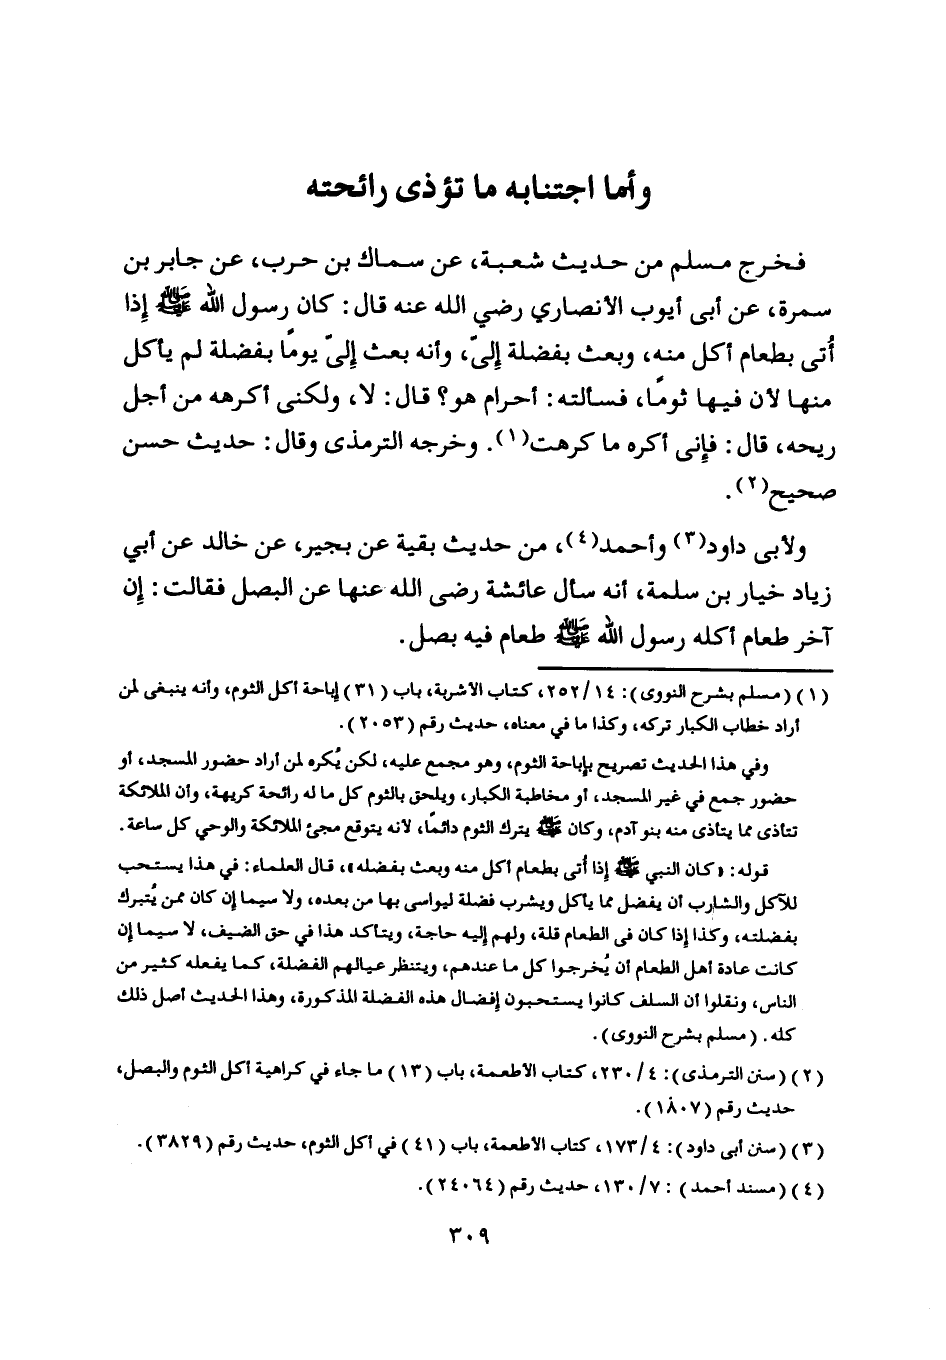 وأما اجتنابه ما تؤذى رائحته
فخرج مسلم من حديث شعبة، عن سماك بن حرب، عن جابر بن
سمرة، عن أبى أيوب الأنصاري رضي الله عنه قال: كان رسول الله ﷺ إذا
أُتى بطعام أكل منه، وبعث بفضلة إلىّ، وأنه بعث إلىّ يومًا بفضلة لم يأكل
منها لأن فيها ثومًا، فسألته: أحرام هو؟ قال: لا، ولكنى أكرهه من أجل
ريحه، قال: فإنى أكره ما كرهت(١). وخرجه الترمذى وقال: حديث حسن
صحيح(٢).
ولأبى داود(٣) وأحمد(٤)، من حديث بقية عن بجير، عن خالد عن أبي
زياد خيار بن سلمة، أنه سأل عائشة رضى الله عنها عن البصل فقالت: إن
آخر طعام أكله رسول الله ﷺ طعام فيه بصل.
(١) (مسلم بشرح النووى): ١٤/ ٢٥٢، كتاب الأشربة، باب (٣١) إباحة أكل الثوم، وأنه ينبغى لمن
أراد خطاب الكبار تركه، وكذا ما في معناه، حديث رقم (٢٠٥٣).
وفي هذا الحديث تصريح بإباحة الثوم، وهو مجمع عليه، لكن يُكره لمن أراد حضور المسجد، أو
حضور جمع في غير المسجد، أو مخاطبة الكبار، ويلحق بالثوم كل ما له رائحة كريهة، وأن الملائكة
تتأذى مما يتأذى منه بنو آدم، وكان ﷺ يترك الثوم دائمًا، لأنه يتوقع مجئ الملائكة والوحي كل ساعة.
قوله: «كان النبي ﷺ إذا أُتى بطعام أكل منه وبعث بفضله»، قال العلماء: في هذا يستحب
للآكل والشارب أن يفضل مما يأكل ويشرب فضلة ليواسى بها من بعده، ولا سيما إن كان ممن يُتبرك
بفضلته، وكذا إذا كان فى الطعام قلة، ولهم إليه حاجة، ويتأكد هذا في حق الضيف، لا سيما إن
كانت عادة أهل الطعام أن يُخرجوا كل ما عندهم، ويتنظر عيالهم الفضلة، كما يفعله كثير من
الناس، ونقلوا أن السلف كانوا يستحبون إفضال هذه الفضلة المذكورة، وهذا الحديث أصل ذلك
كله. (مسلم بشرح النووى).
(٢) (سنن الترمذى): ٤/ ٢٣٠، كتاب الأطعمة، باب (١٣) ما جاء في كراهية أكل الثوم والبصل،
حديث رقم (١٨٠٧).
(٣) (سنن أبى داود): ٤/ ١٧٣، كتاب الأطعمة، باب (٤١) في أكل الثوم، حديث رقم (٣٨٢٩).
(٤) (مسند أحمد): ٧/ ١٣٠، حديث رقم (٢٤٠٦٤).
٣٠٩